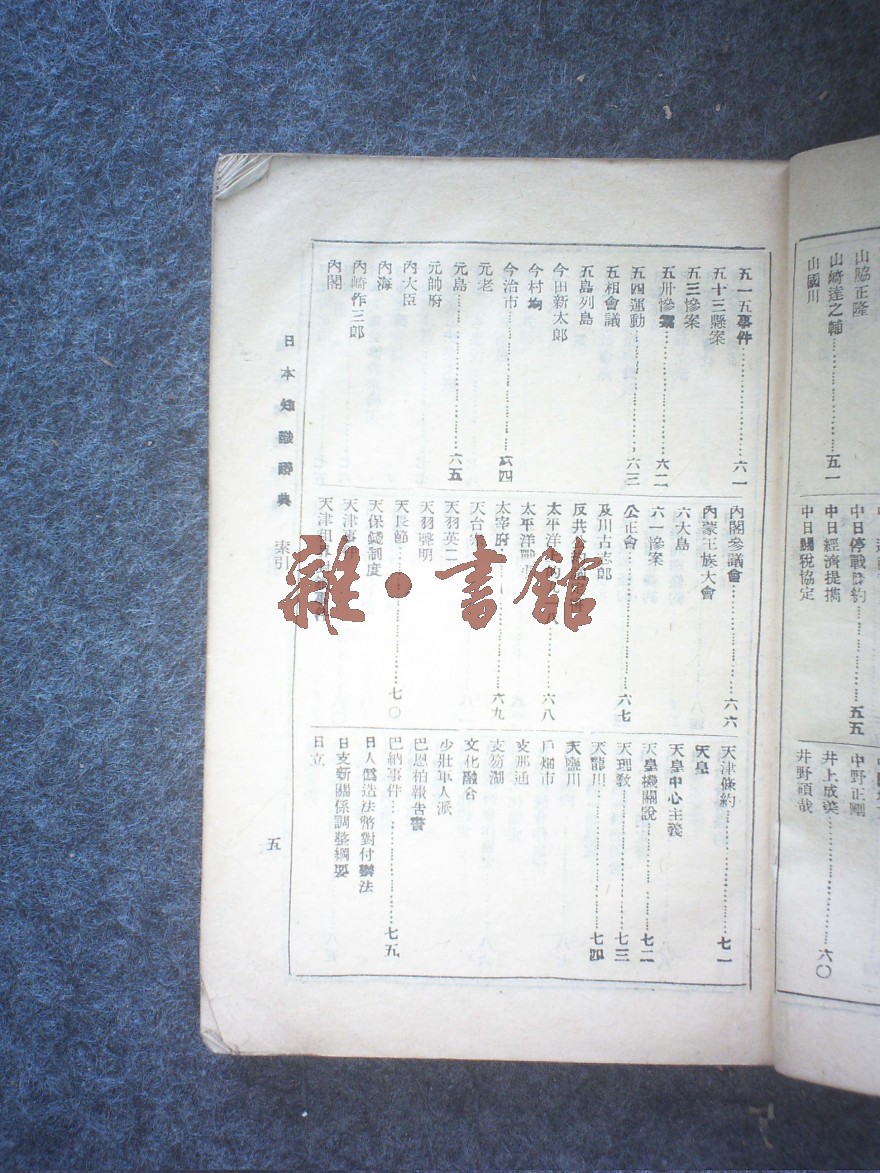 山脇正隆
山崎達之輔……五一
山國川
中日停戰協約……五五
中日經濟提携
中日關稅協定
中野正剛
井上成美……六〇
井野碩哉
五一五事件……六一
五十三懸案
五三慘案
五卅慘案……六二
五四運動……六三
五相會議
五島列島
今田新太郎
今村均
今治市……六四
元老
元島……六五
元帥府
內大臣
內海
內崎作三郎
內閣
內閣參議會……六六
內蒙王族大會
六大島
六一慘案
公正會……六七
及川古志郎
反共
太平洋……六八
太平洋
太宰府……六九
天台
天羽英二
天羽聲明
天長節……七〇
天保錢制度
天津事件
天津租界
天津條約……七一
天皇
天皇中心主義
天皇機關說……七二
天理敎……七三
天龍川……七四
天鹽川
戶畑市
支那通
支笏湖
文化融合
少壯軍人派
巴恩柏報告書
巴納事件……七五
日人僞造法幣對付辦法
日支新關係調整綱要
日立
日本知識辭典 索引
五
雜·書館